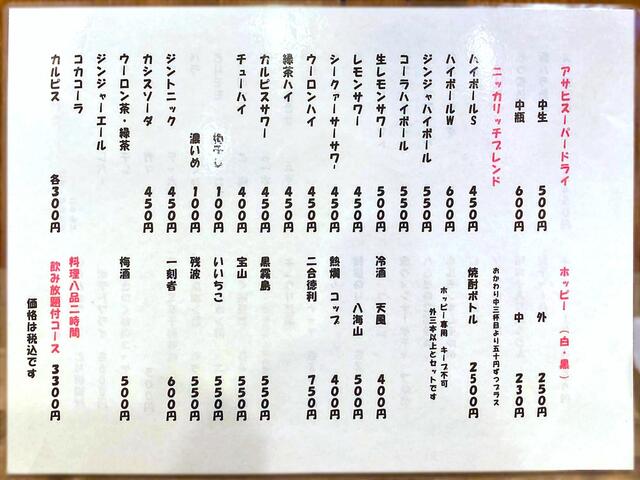 アサヒスーパードライ
中生 500円
中瓶 600円
ニッカリッチブレンド
ハイボールS 450円
ハイボールW 600円
ジンジャハイボール 550円
コーラハイボール 550円
生レモンサワー 500円
レモンサワー 450円
シークァーサーサワー 450円
ウーロンハイ 450円
緑茶ハイ 450円
カルピスサワー 450円
チューハイ 400円
梅干し 100円
濃いめ 100円
ジントニック 450円
カシスソーダ 450円
ウーロン茶・緑茶
ジンジャーエール
コカコーラ
カルピス 各300円
ホッピー（白・黒）
外 250円
中 230円
おかわり中三杯目より五十円ずつプラス
焼酎ボトル 2500円
ホッピー専用 キープ不可
外三本以上とセットです
冷酒 天風 400円
八海山 500円
熱燗 コップ 400円
二合徳利 750円
黒霧島 550円
宝山 550円
いいちこ 550円
残波 550円
一刻者 600円
梅酒 500円
料理八品二時間
飲み放題付コース 3300円
価格は税込です